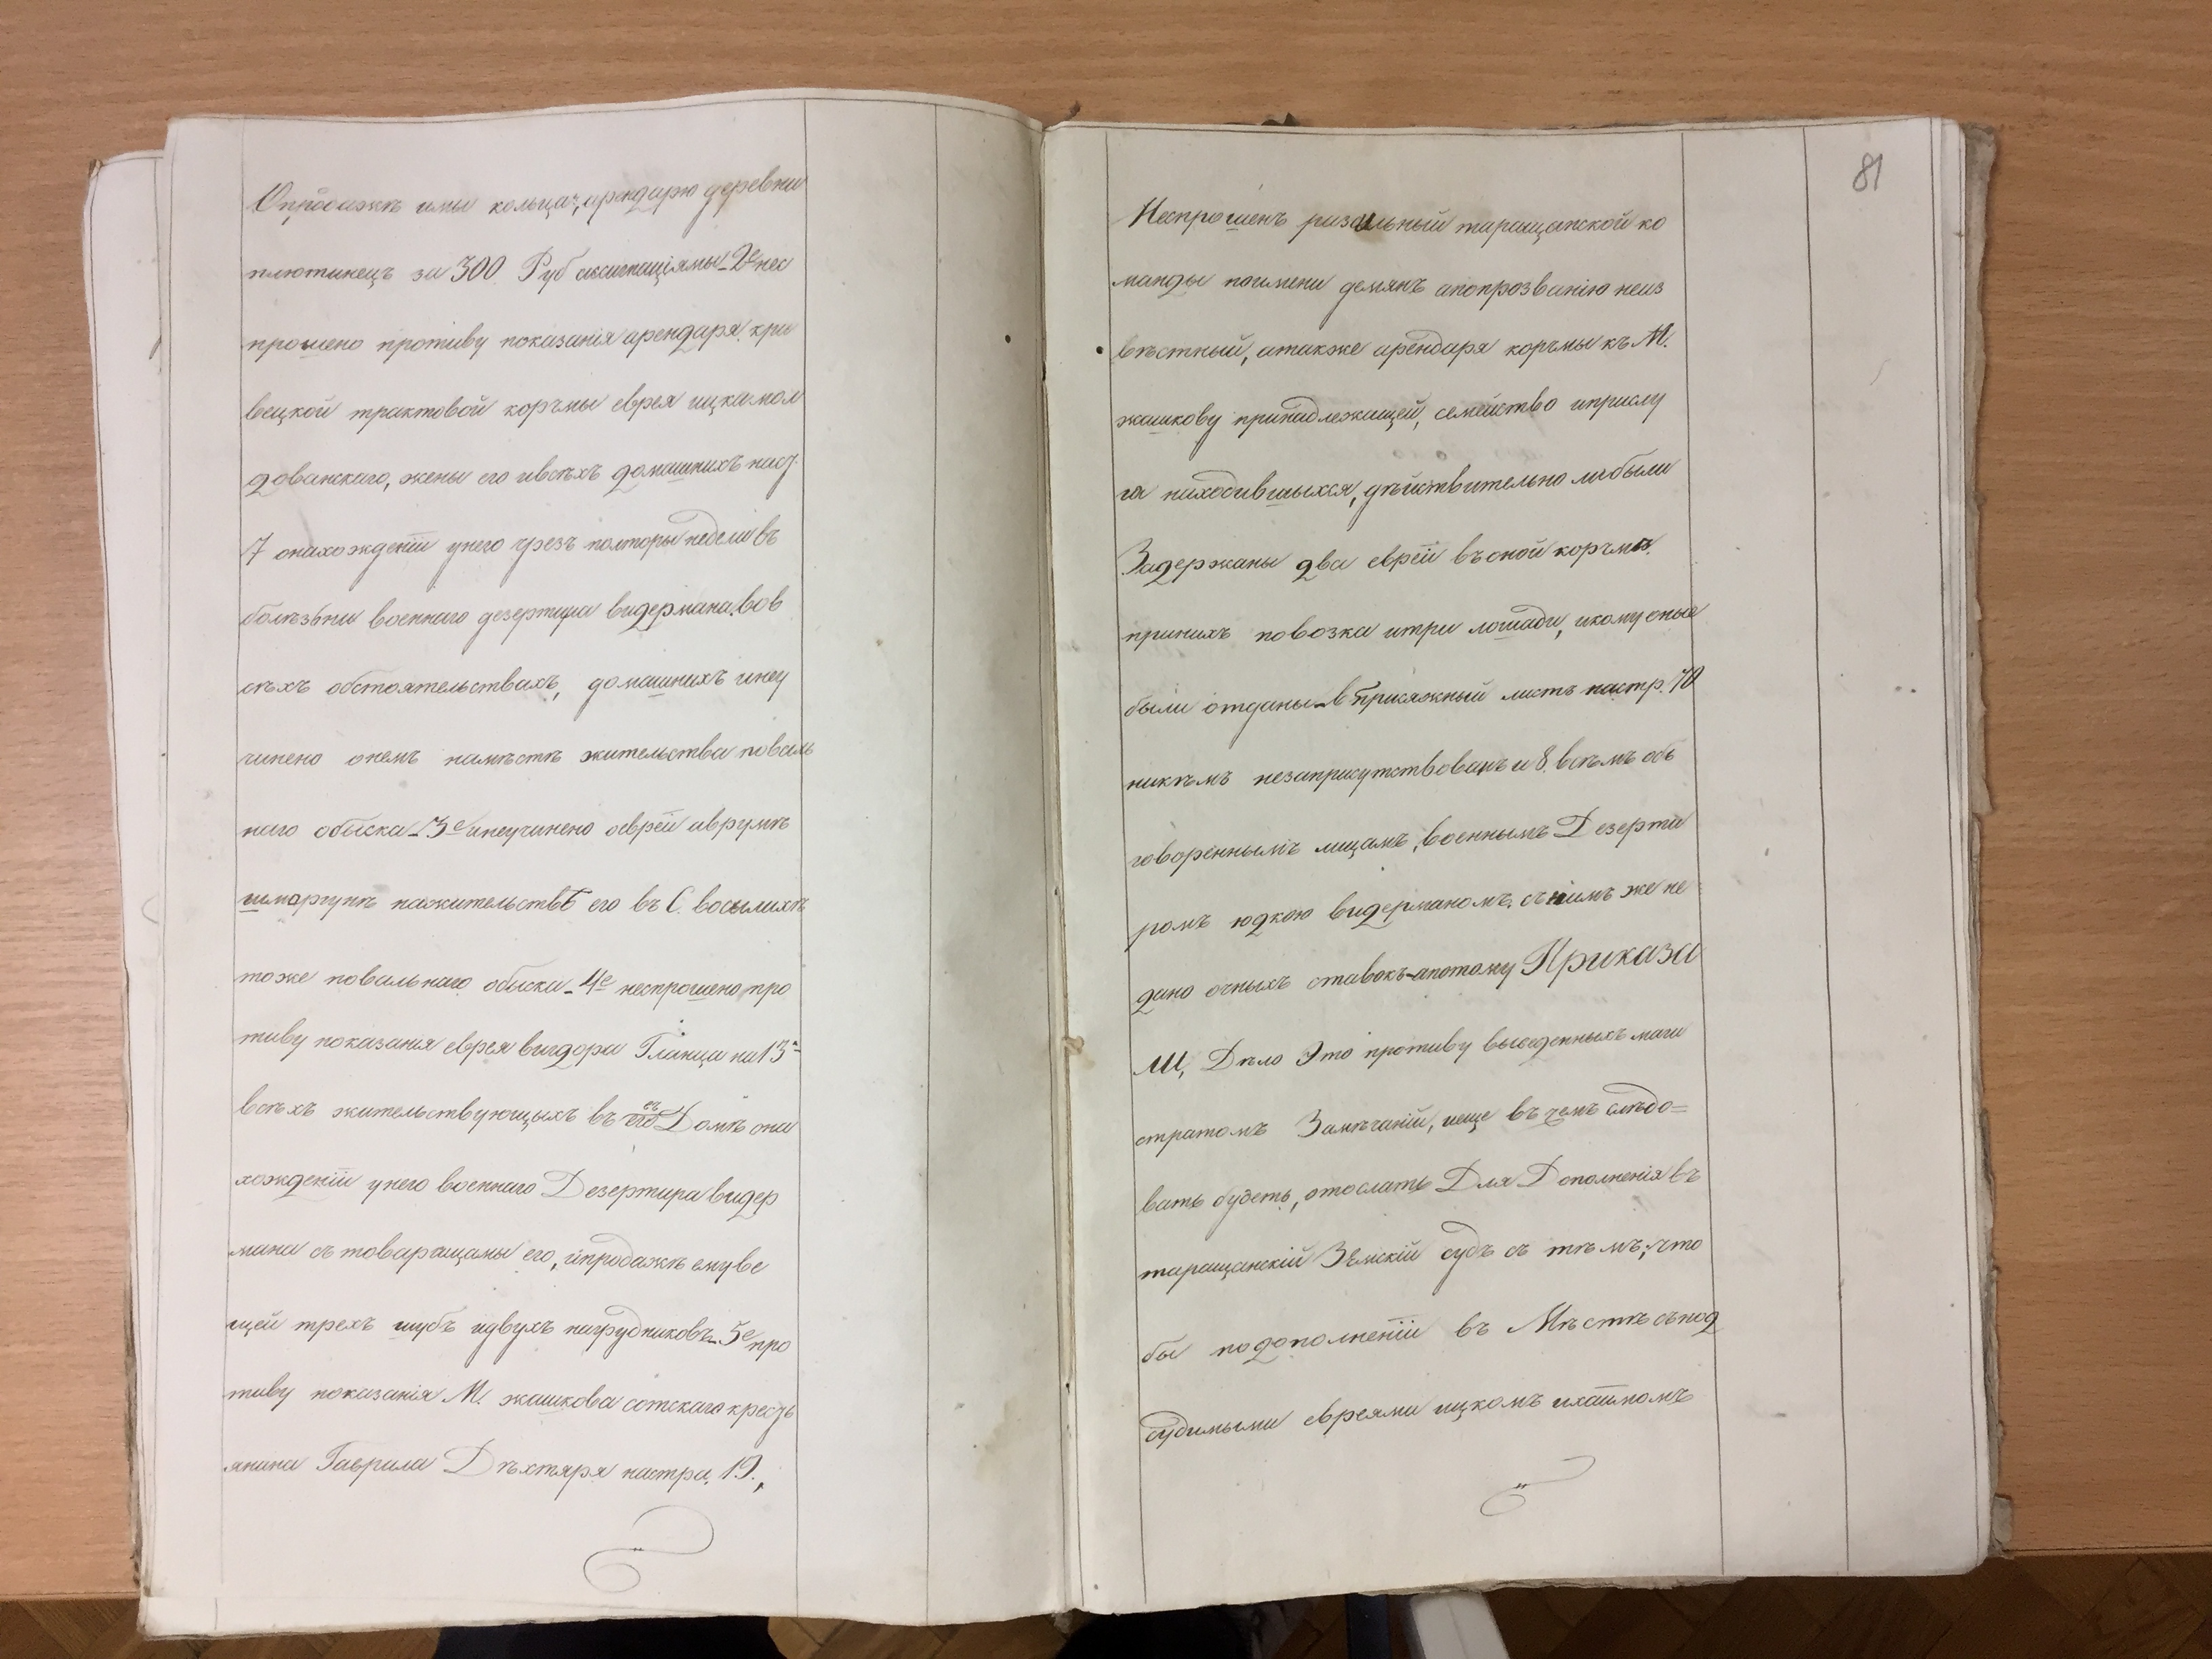 Опродажѣ имы кольца, арендарю деревни
плютинецъ за 300 Руб ассигнаціямы_2е нес
прошено противу показанія арендаря кри
вецкой трактовой корчмы еврея ицка мол
дованскаго, жены его ивсѣхъ домашнихъ наоз.
7 онахожденіи унего чрезъ полторы недели въ
болѣзьни военнаго дезертира видермана. вов
сѣхъ обстоятельствахъ, домашнихъ инеу
чинено онемъ намѣстѣ жительства поваль
наго обыска_3е инеучинено оеврей аврумѣ
шмаргунѣ нажительствѣ его въ С. восылихѣ
тоже повальнаго обыска_4е неспрошено про
тиву показанія еврея вигдора Гланца на 13
всѣхъ жительствующыхъ въ его еъ Домѣ она
хожденіи унего военнаго Дезертира видер
мана съ товарищамы его, ипродажѣ ему ве
щей трехъ шубъ идвухъ нагрудниковъ_5е про
тиву показанія М. жашкова сотскаго кресть
янина Гаврила Дѣхтяря настра. 19.,
81
Неспрошенъ разсыльный таращанской ко
манды поимени демянъ апопрозванію неиз
вѣстный, атакже арендаря корчмы къ М.
жашкову принадлежащей, семейство иприслу
га находившыхся, дѣйствительно либыли
Задержаны два еврей въ оной корчмѣ.
принихъ повозка итри лошади, икому оные
были отданы_в Присяжный листъ настр. 70
никѣмъ незаприсутствованъ и 8. всѣмъ обь
говореннымъ лицамъ, военнымъ Дезерти
ромъ юдкою видерманомъ. съ нимъ же не
дано очныхъ ставокъ-апотому Приказа
ли, Дѣло Это противу выведенныхъ маги
стратомъ Замѣчаній, иеще въ чемъ слѣдо=
вать будеть, отослать Для Дополненія въ
таращанскій Земскій судъ съ тѣмъ; что
бы подополненіи въ Мѣстѣ съпод
судимыми евреями ицкомъ ихаимомъ